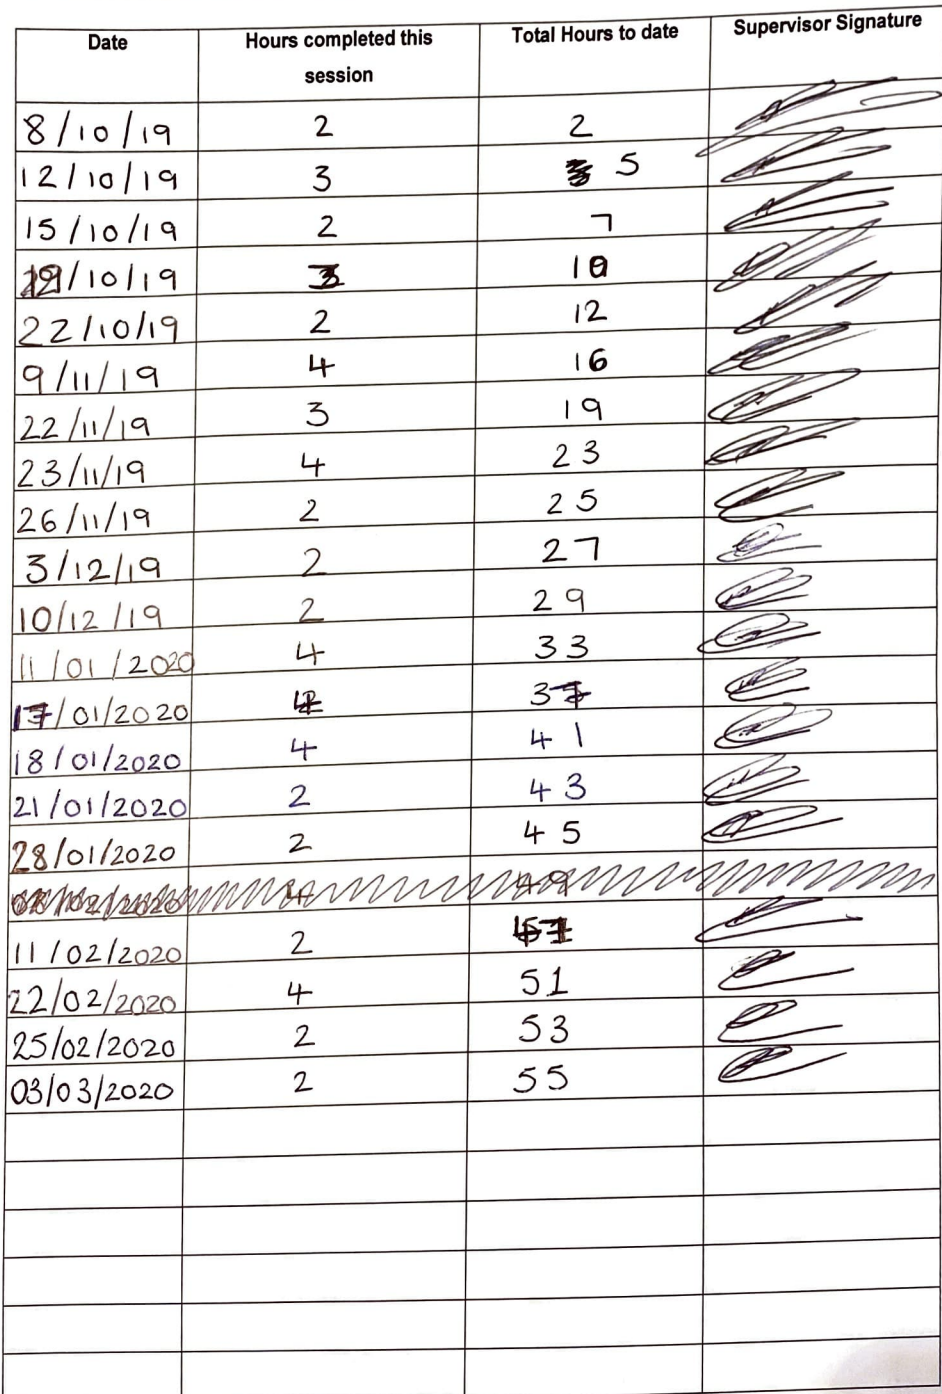 Date Hours completed this session Total Hours to date Supervisor Signature
8/10/19 2 2
12/10/19 3 5
15/10/19 2 7
19/10/19 3 10
22/10/19 2 12
9/11/19 4 16
22/11/19 3 19
23/11/19 4 23
26/11/19 2 25
3/12/19 2 27
10/12/19 2 29
11/01/2020 4 33
17/01/2020 4 37
18/01/2020 4 41
21/01/2020 2 43
28/01/2020 2 45
11/02/2020 2 47
22/02/2020 4 51
25/02/2020 2 53
03/03/2020 2 55